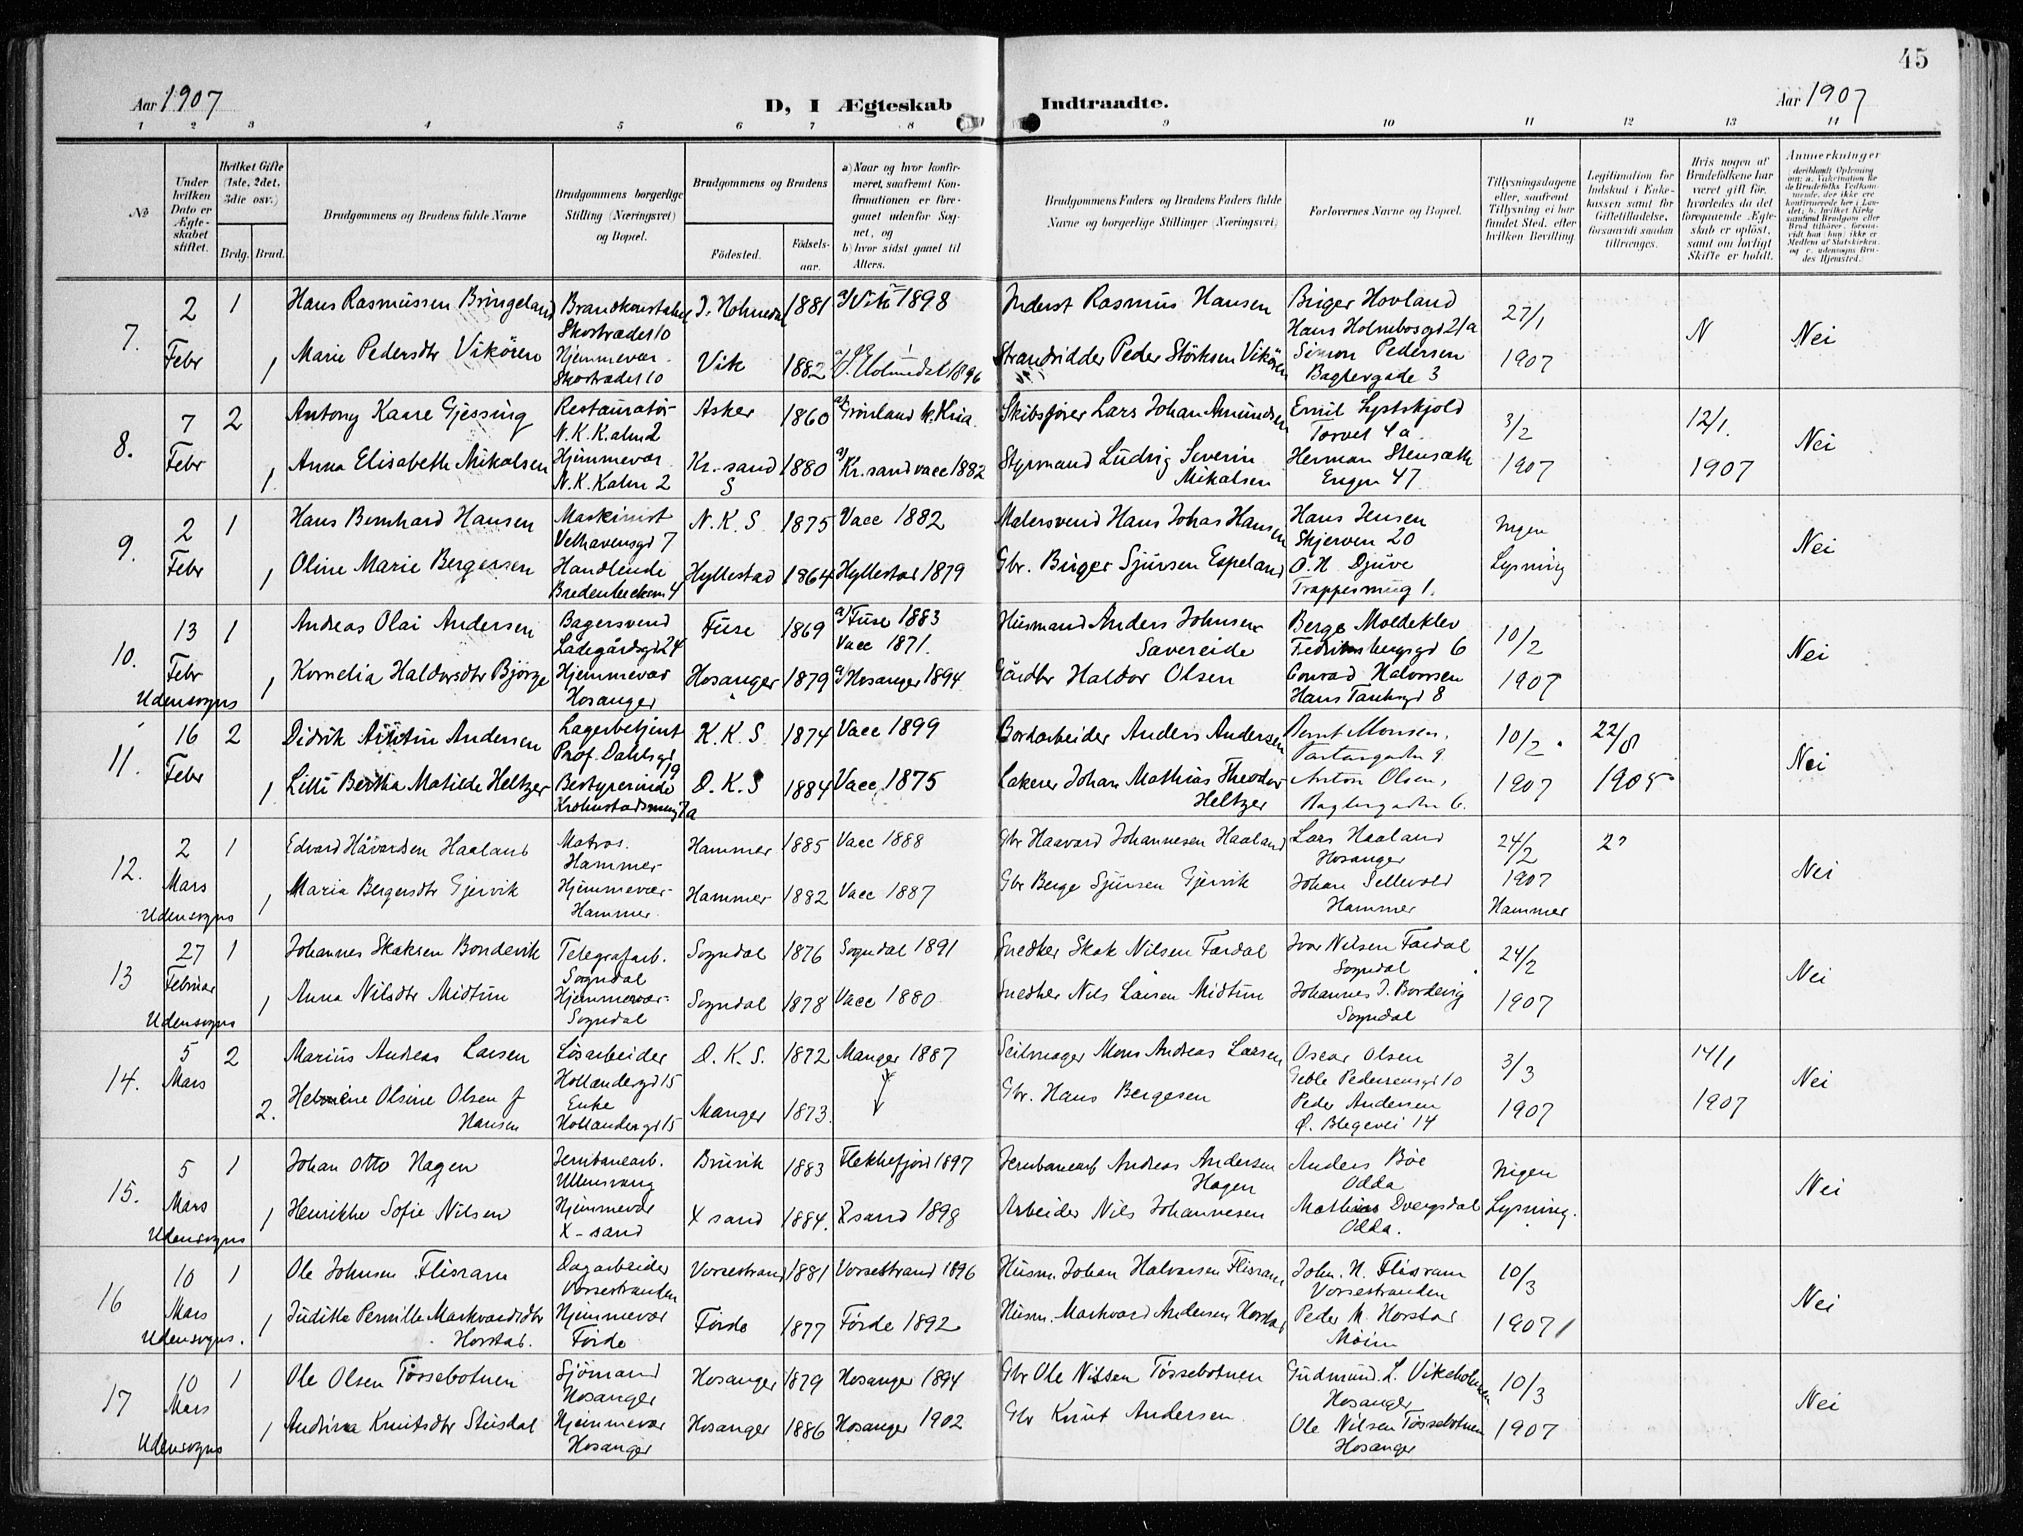 45
Aar 1907 D, I Ægteskab Indtraadte. Aar 1907
1 2 3 4 5 6 7 8 9 10 11 12 13 14
No
Under hvilken Dato er Ægteskabet stiftet.
Hvilket Gifte (1ste, 2det, 3die osv.)
Brdg. Brud.
Brudgommens og Brudens fulde Navne
Brudgommens borgerlige Stilling (Næringsvei) og Bopæl.
Brudgommens og Brudens
Födested. Födselsaar.
a) Naar og hvor konfirmeret, saafremt Konfirmationen er foregaaet udenfor Sognet, og
b) hvor sidst gaaet til Alters.
Brudgommens Faders og Brudens Faders fulde Navne og borgerlige Stillinger (Næringsvei)
Forlovernes Navne og Bopæl.
Tillysningsdagene eller, saafremt Tillysning ei har fundet Sted, efter hvilken Bevilling.
Legitimation for Indskud i Enkekassen samt for Giftetilladelse, forsaavidt saadan tiltrænges.
Hvis nogen af Brudefolkene har været gift før, hvorledes da det foregaaende Ægteskab er oplöst, samt om lovligt Skifte er holdt.
Anmerkninger
7. 2 Febr 1 Hans Rasmussen Bringeland Brandkonstabel Skostrædet 10 I. Holmedal 1881 a) Vik 1898 Inderst Rasmus Hansen Birger Hovland Hans Holmboesgd 21a 27/1 N Nei
1 Marie Pedersdtr Vikören Hjemmevær. Skostrædet 10 Vik 1882 Holmedal 1896 Strandridder Peder Störksen Vikören Simon Pedersen Baglergade 3 1907
8. 7 Febr 2 Antony Kaare Gjessing Restauratör N. K. Kalm 2 Asker 1860 a) Grönland k. Kria. Skibsförer Lars Johan Amundsen Emil Lystskjold Torvet 4a. 3/2 12/1. Nei
1. Anna Elisabeth Mikalsen Hjemmevær N. K. Kalm 2 Kr.sand S 1880 a) Kr.sand vacc 1882 Styrmand Ludvig Severin Mikalsen Herman Stensæth Engen 47 1907 1907
9. 2 Febr 1 Hans Bernhard Hansen Maskinist Velhavensgd 7 N. K. S. 1875 Vacc 1882 Malersvend Hans Johas Hansen Hans Jensen Skjerven 20 Ingen Nei
1 Oline Marie Bergersen Handlende Hyllestad 1864 Hyllestad 1879 Gbr. Birger Sjursen Espeland O. H. Djuve Trappesmug 1. Lysning
10. 13 Febr 1 Andreas Olai Andersen Bagersvend Ladegårdsgd 24 Fuse 1869 a) Fuse 1883 Vacc 1871. Husmand Anders Johnsen Sævereide Berge Moldeklev 6 10/2 Nei
Udensogns 1 Kornelia Haldorsdtr Bjørge Hjemmevær Hosanger Hosanger 1879 a) Hosanger 1894 Gårdbr Haldor Olsen Conrad Halvorsen Hans Tanksgd 8 1907
11. 16 Febr 2 Didrik Andersen Lagerbetjent Prof. Dahlsgd 19 K. K. S. 1874 Vacc 1899 Bordarbeider Anders Andersen Bernt Monsen, 9. 10/2. 22/8 Nei
1. Lilli Bertha Matilde Heltzer Bestyrerinde Kronstadsmug 7a D. K. S 1884 Vacc. 1875 Lakerer Johan Mathias Theodor Heltzer Anton Olsen, Baglergaden 6. 1907 1905
12. 2 Mars 1 Edvard Håvardsen Haaland Matros. Hammer Hammer 1885 Vacc 1888 Gbr Haavard Johannesen Haaland Lars Haaland Hosanger 24/2 2? Nei
Udensogns 1 Maria Bergersdtr Gjervik Hjemmevær Hammer. Hammer 1882 Vacc 1887 Gbr Berge Sjursen Gjervik Johan Sellevold Hammer 1907 Hammer
13 27 Februar 1 Johannes Skaksen Bondevik Telegrafarb. Sogndal Sogndal 1876 Sogndal 1891 Snedker Skak Nilsen Fardal Ivar Nilsen Fardal Sogndal 24/2 Nei
Udensogns 1 Anna Nilsdtr Midtun Hjemmevær Sogndal Sogndal 1878 Vacc 1880 Snedker Nils Larsen Midtun Johannes I. Bordevig Sogndal 1907
14. 5 Mars 2 Marius Andreas Larsen Løsarbeider Hollendergd 15 D. K. S. 1872 Manger 1887 Seilmager Mons Andreas Larsen Oscar Olsen Geble Pedersensgd 10 3/3 14/1 Nei
2. Helmine Olsine Olsen f Hansen Enke Hollendergd 15 Manger 1873. Gbr. Hans Bergesen Peder Andersen Ø. Blegevei 14 1907 1907
15. 5 Mars 1 Johan Otto Hagen Jernbanearb. Ullensvang Bruvik 1883 Flekkefjord 1897 Jernbanearb Andreas Andersen Hagen Anders Böe Odda Ingen Nei
Udensogns 1 Henrikke Sofie Nilsen Hjemmevær X-sand X sand 1884. X sand 1898 Arbeider Nils Johannesen Mathias Dvergsdal Odda. Lysning.
16 10 Mars 1 Ole Johnsen Flisram Dagarbeider Vossestranden Vossestrand 1881 Vossestrand 1896 Husm. Johan Halvorsen Flisram John. H. Flisram Vossestranden 10/3 Nei
Udensogns. 1 Juditta Pernille Markvardsdtr Horstad. Hjemmevær Förde Förde 1877 Förde 1892 Husm. Markvard Andersen Horstad Peder M Horstad 1907
17 10 Mars 1 Ole Olsen Tössebotnen Sjömand Hosanger Hosanger 1879 Hosanger 1894 Gbr Ole Nilsen Tössebotnen Gudmund. L. Vikeholmen Hosanger 10/3 Nei
Udensogns 1 Andrina Knutsdtr Stusdal Hjemmevær Hosanger Hosanger 1886 Hosanger 1902 Gbr Knut Andersen Ole Nilsen Tössebotnen Hosanger 1907